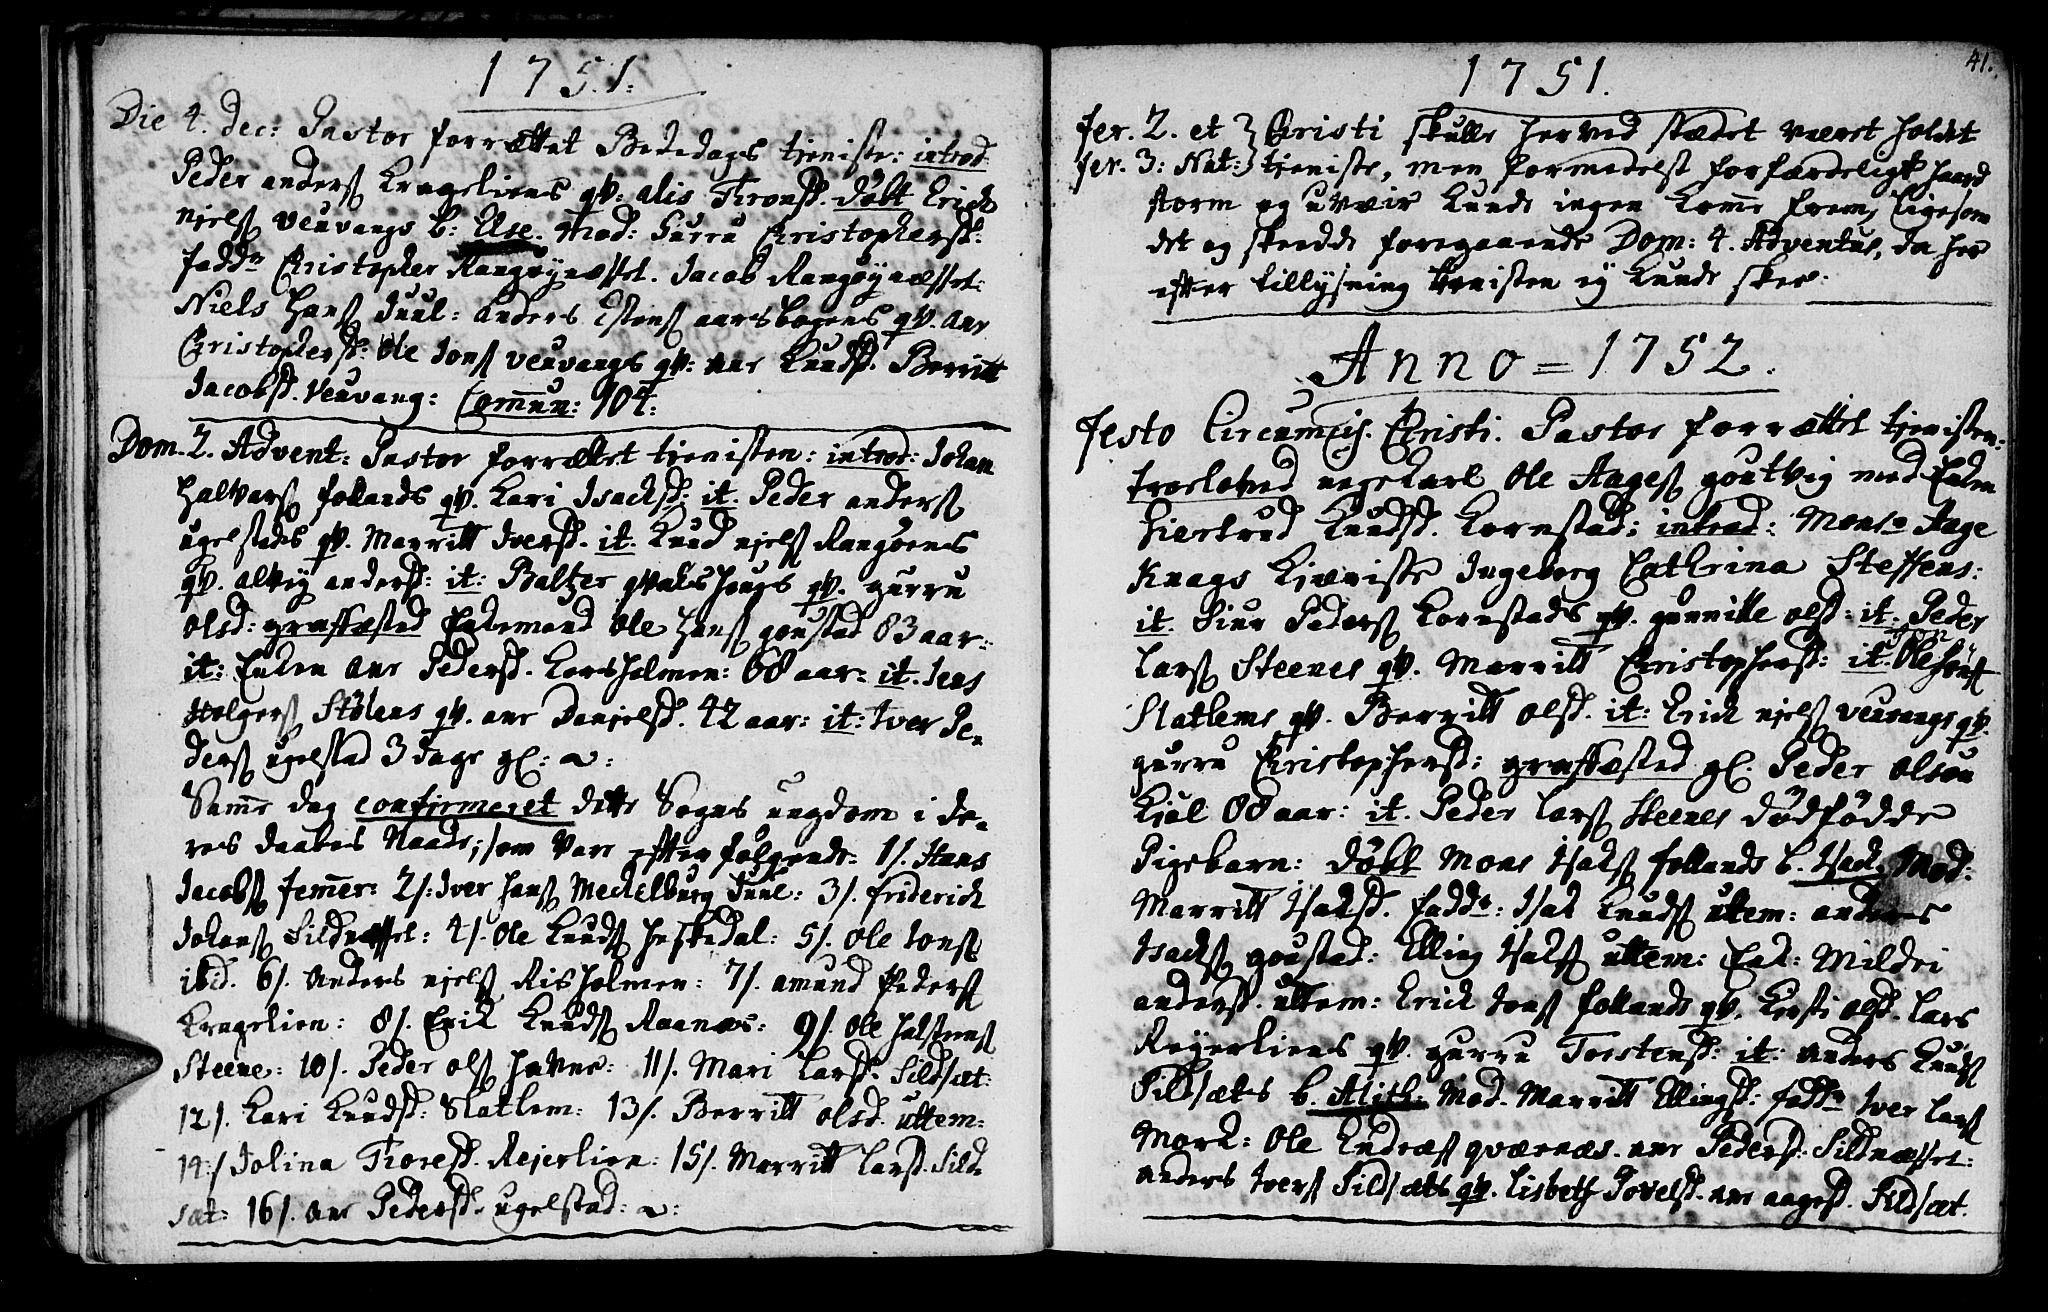 1751.
Die 4. Dec: Pastor forrættet Bededags tieniste: introd.
Peder anders: Krageliens qv: alis Tronsd. døbt Erich
njels: Veuvangs b: Else. Mod: Gurru Christophersd:
Fadd: Christopher Rangøynæsset. Jacob Rangøynæsset:
Niels Hans: Juul: Anders Estens: aarsbogens qv. ane
Christophersd: Ole Jons: Veuvangs qv: ane Knudsd. Berritt
Jacobsd. Veuvang: Commun: 904:
Dom. 2. Advent: Pastor forrættet tienisten: introd: Johan
Halvars: follands qv. Kari Isachsd: it. Peder anders:
ugelstads qv. Marritt Iversd. it. Knud njels: Rangøens
qv. alvig andersd: it: Baltzer qvalshougs qv. gurru
olsd: graffæsted Enkemand Ole Hans: goustad 83 aar:
it: Enken Ane Pedersd. Korsholmen: 68 aar: it. Jens
Holgers: Stølens qv. ane Danjelsd. 42 aar: it: Iver Pe-
ders: ugelstad 3 dage gl: a:
Same dag confirmeret dette Sogns ungdom i de-
res daabes Naade; som vare efterfølgende: 1/. Hans
Jacobs: Femer: 2/: Iver Hans: Mechelburg Juul: 3/. friderich
Johans: Sildnæsset: 4/. Ole Knuds: Heskedal: 5/. Ole Jons:
ibid. 6/. Anders njels: Risholmen: 7/. amund Peders:
Kragelien: 8/. Erik Knuds: Raanæs: 9/. Ole Halstens:
Steene: 10/. Peder ols: Havne: 11/. Mari Larsd. Sildsæt:
12/. Kari Knudsd: Slatlem: 13/. Berritt olsd. uttem:
14:/ Jolina Toresd. Rejerlien: 15/. Marritt Larsd. Sild-
sæt: 16/. Ane Pedersd. ugelstad: a:
41.
1751.
fer. 2. et } Christi skulle her ved stædet været holdet
fer. 3: Nat: } tieniste, men formedelst forfærdeligt haard
storm og uveir kunde ingen kome frem, ligesom
det og skeedde foregaaende Dom: 4. Adventus, da her
efter tillysning tienisten ey kunde skee.
Anno = 1752.
Festo Circumcis. Christi. Pastor forrættet tienisten:
troelofved ungekarl Ole Aages: goutvig med Enken
Giertrud Knudsd. Kornstad: introd: Monsr Aage
Knags Kiæriste Ingeborg Cathrina Steffens:
it. Siur Peders: Kornstads qv. gunnille olsd: it. Peder
Lars: Steenes qv. Marritt Christophersd: it. Ole Jons:
Slatlems qv. Berritt olsd. it: Erich njels: veuvangs qv.
gurru Christophersd: graffæsted gl. Peder olsøn
Kiøl 88 aar: it. Peder Lars: Steenes dødfødde
Pigebarn: døbt Mons Isaks: follands b. Isach. Mod:
Marritt Isaksd. Fadd: Isak Knuds: uttem: anders
Isachs: goustad: Elling Isaks: uttem: Enk: Mildri
andersd. uttem: Erich Jons: follands qv. Kirsti olsd. Lars
Rejerliens qv. gurru Torstensd: it: Anders Knuds:
Sildsæts b. Alith: Mod. Marritt Ellingsd: fadd: Iver Lars:
Mork: Ole Endræs: qværnæs. ane Pedersd. Sildnæsset:
anders Ivers: Sildsæts qv. Lisbeth Povelsd. ane aagesd. Sildsæt.